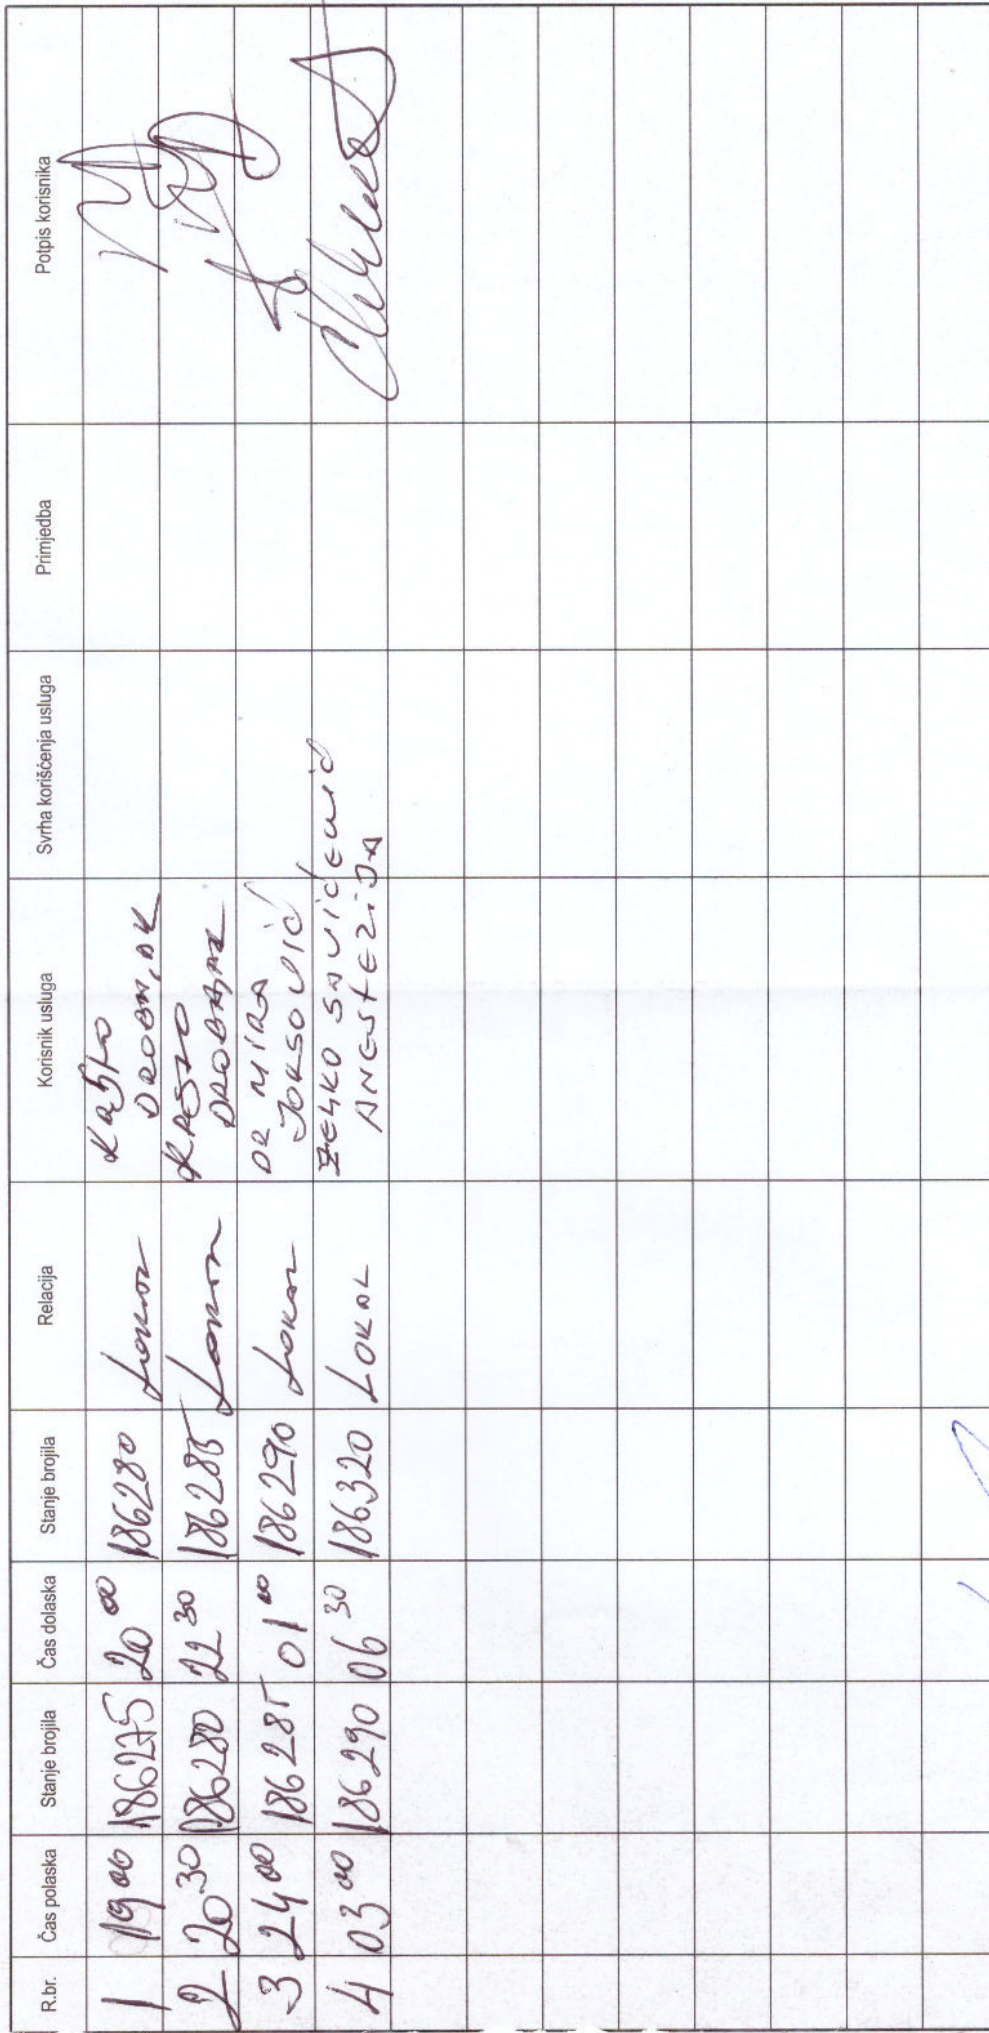 R.br. Čas polaska Stanje brojila Čas dolaska Stanje brojila Relacija Korisnik usluga Svrha korišćenja usluga Primjedba Potpis korisnika
1 19 00 186275 20 00 186280 Lokal
2 20 30 186280 22 30 186285 Lokal
3 24 00 186285 01 00 186290 Lokal DR MIRA
JOKSOVIĆ
4 03 00 186290 06 30 186320 LOKAL ŽELJKO SAVIĆEVIĆ
ANESTEZIJA